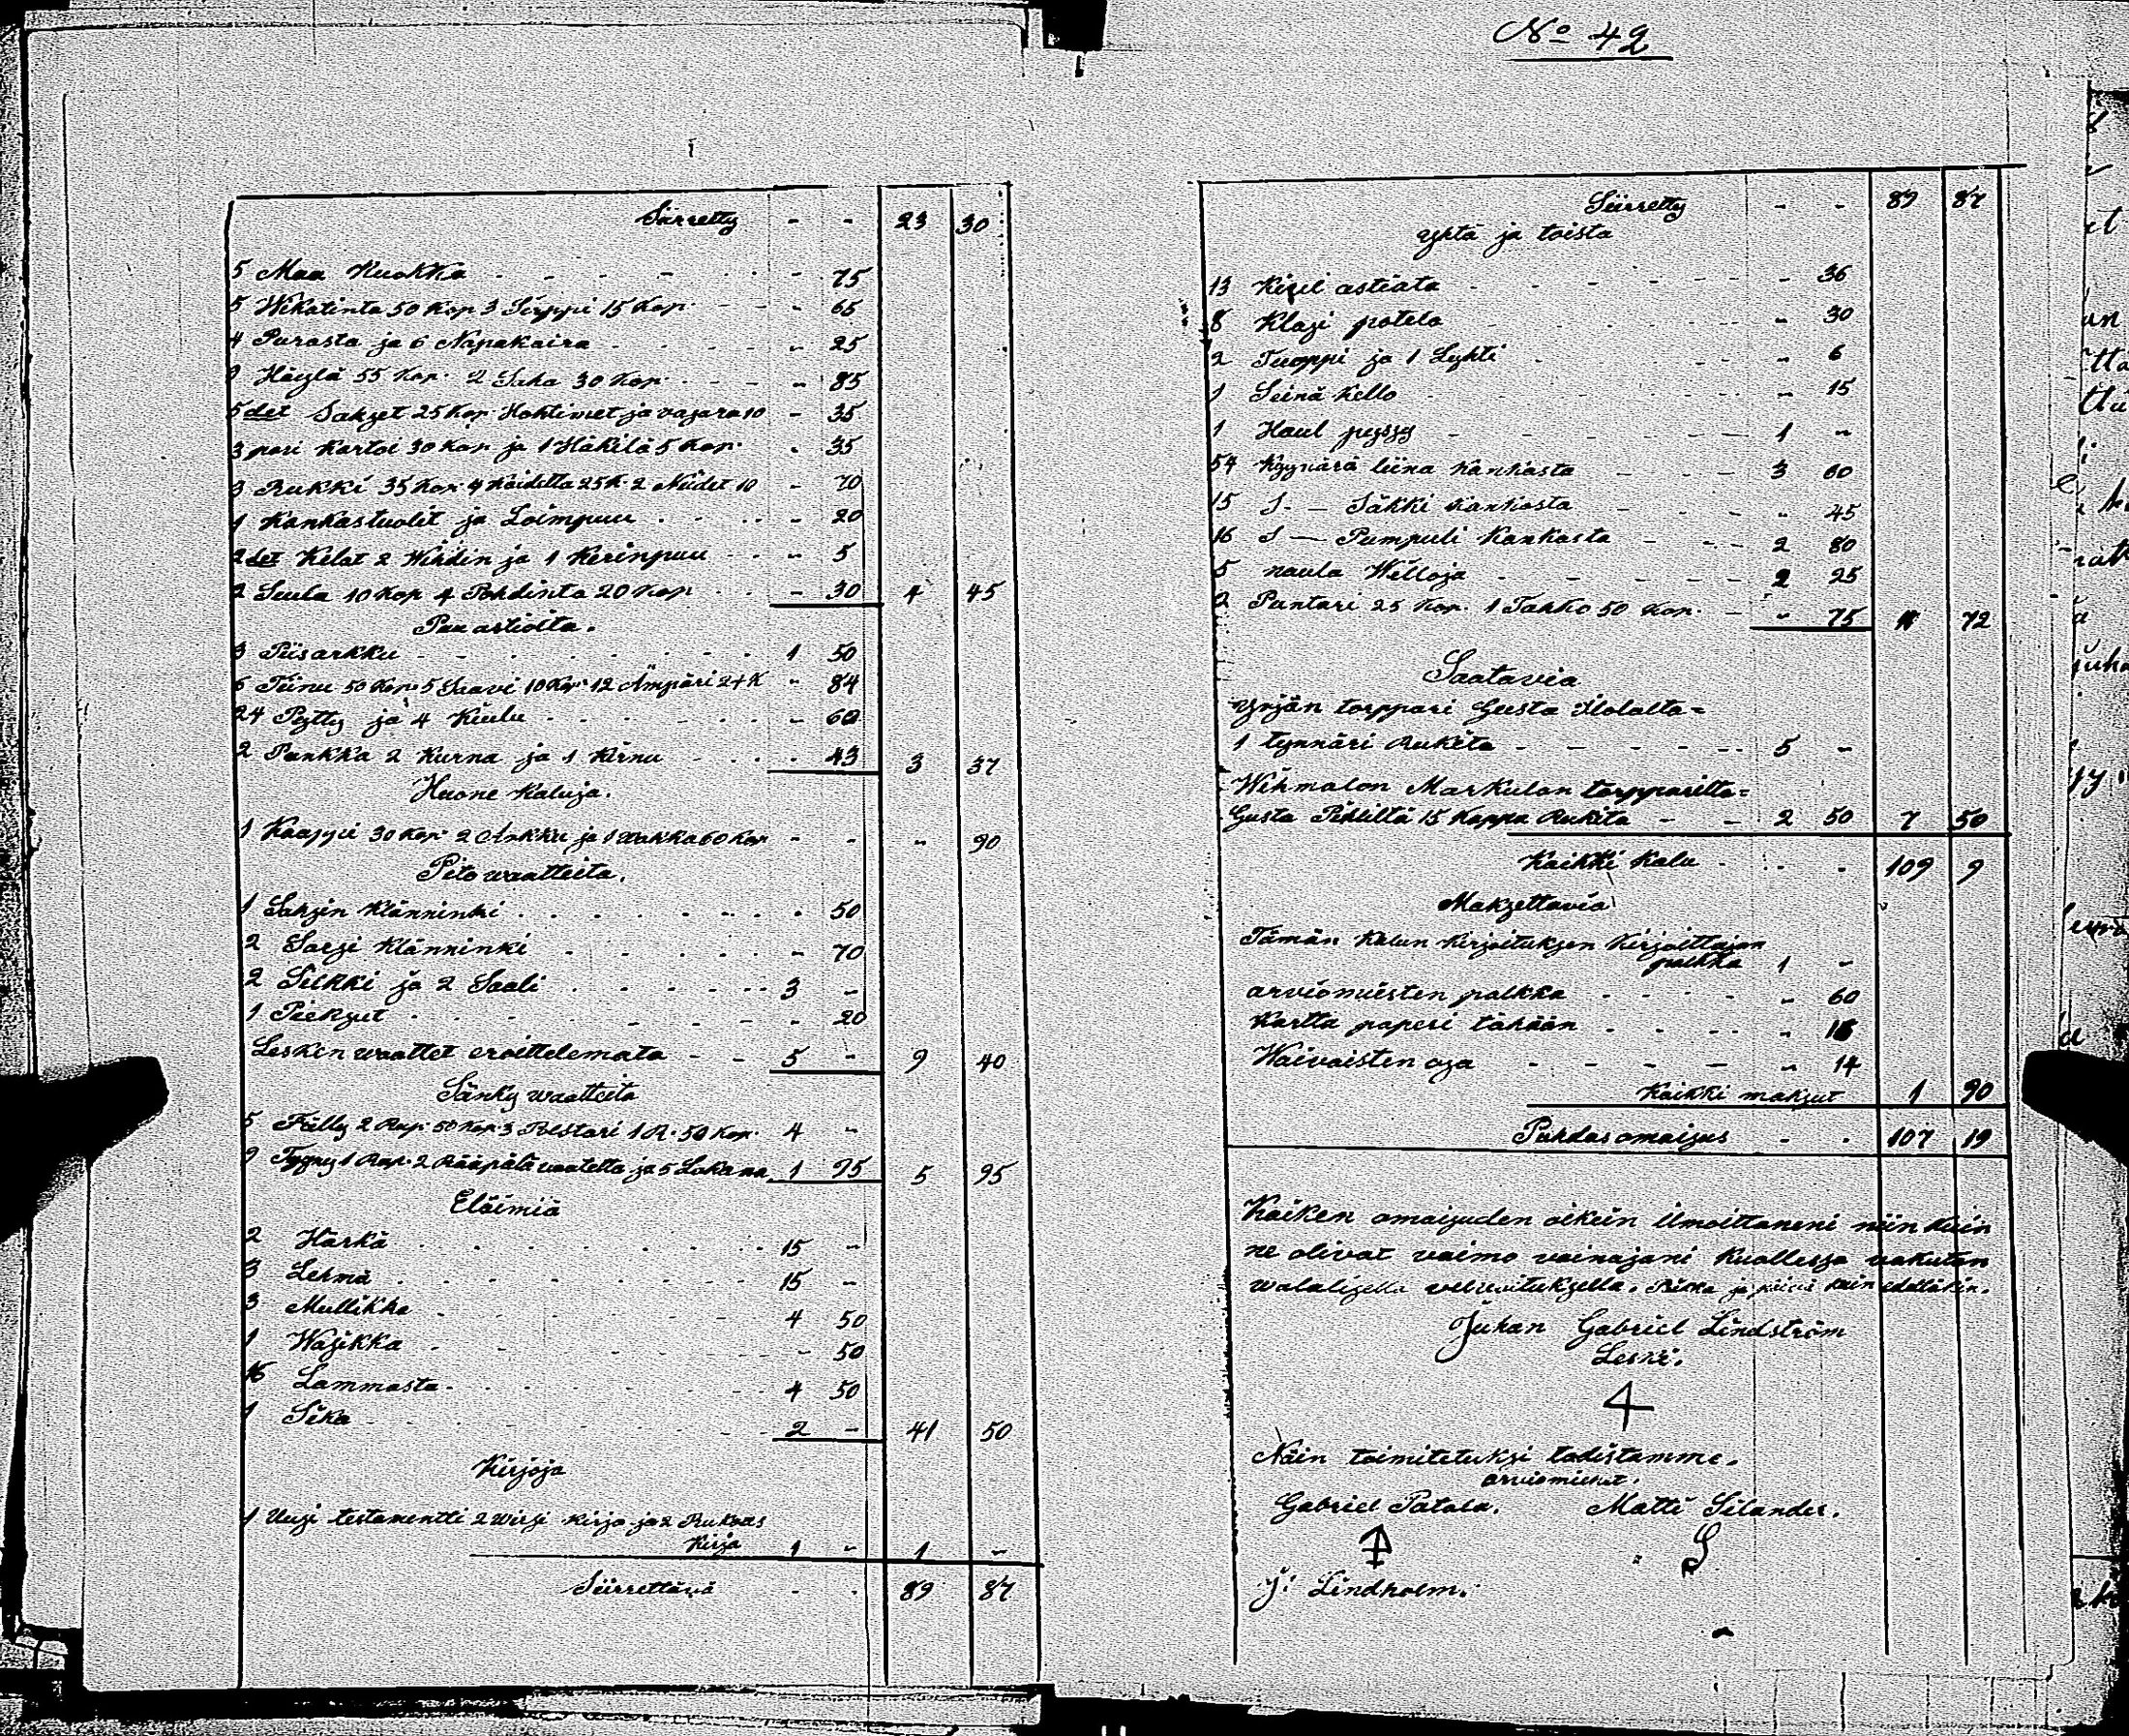 No 42
Siirretty - - 23 30
5 Maa Kuokka - 75
5 Wikatinta 50 Kop 3 Sirppi 15 Kop. - 65
4 Purasta ja 6 Napakaira - 25
9 Häylä 55 Kop. 2 Saha 30 Kop. - 85
5 det Sakset 25 Kop Hohtimet ja vasara 10 - 35
3 pari Kartoi 30 Kop ja 1 Häkilä 5 Kop. - 35
3 Rukki 35 Kop. 4 Kaidetta 25 K. 2 Niidet 10 - 70
1 Kankastuolit ja Loimpuu - 20
2 det Kelat 2 Wihdin ja 1 Kerinpuu - 5
2 Seula 10 Kop 4 Pohdinta 20 Kop - 30 4 45
Puu astioita.
3 Piisarkku 1 50
6 Tiinu 50 Kop. 5 Saavi 10 Kop. 12 Ämpäri 24 K - 84
24 Pytty ja 4 Kiulu - 60
2 Punkka 2 Kurna ja 1 Kirnu - 43 3 37
Huone Kaluja.
1 Kaappi 30 Kop. 2 Arkku ja 1 Wakka 60 Kop - - - 90
Pito waatteita.
1 Sahyin Klänninki - 50
2 Sarsi Klänninki - 70
2 Silkki ja 2 Saali 3 -
1 Pieksut - 20
Lesken waattet eroittelemata 5 - 9 40
Sänky waatteita
5 Fälly 2 Rup. 50 Kop. 3 Polstari 1 R. 50 Kop. 4 -
9 Tyyny 1 Rup. 2 Rääpälä waatetta ja 5 Lakanaa 1 95 5 95
Eläimiä
2 Härkä 15 -
3 Lehmä 15 -
3 Mullikka 4 50
1 Wasikka - 50
16 Lammasta 4 50
1 Sika 2 - 41 50
Kirjoja
1 Uusi testamentti 2 Wirsi Kirja ja 2 Rukous
Kirja 1 - 1 -
Siirrettävä - - 89 87
Siirretty - - 89 87
Yhtä ja toista
13 Kivil astiata - 36
8 Klasi potelo - 30
2 Tuoppi ja 1 Lyhti - 6
1 Seinä Kello - 15
1 Haul pyssy 1 -
54 Kyynärä liina Kankasta 3 60
15 S - Säkki Kankasta - 45
16 S - Pumpuli Kankasta 2 80
5 naula Willoja 2 25
2 Puntari 25 Kop. 1 Tahko 50 Kop. - 75 11 72
Saatavia
Yrjän torppari Gusta Ilolalta =
1 tynnäri Rukita 5 -
Wihmalon Markulan torpparilta =
Gusta Pihliltä 15 Kappa Rukita 2 50 7 50
Kaikki Kalu - - 109 9
Maksettavia
Tämän Kalun Kirjoituksen Kirjoittajan
palkka 1 -
arviomiesten palkka - 60
Kartta paperi tähään - 16
Waivaisten osa - 14
Kaikki maksut 1 90
Puhdas omaisus - - 107 19
Kaiken omaisuden oikein ilmoittaneni niin kuin
ne olivat vaimo vainajani Kuollessa vakutan
walalisella velvoituksella. Paikka ja päivä kuin edelläkin.
Juhan Gabriel Lindström
Leski.
Näin toimitetuksi todistamme.
arviomiehet.
Gabriel Patala. Matti Silander.
S
J. Lindholm.